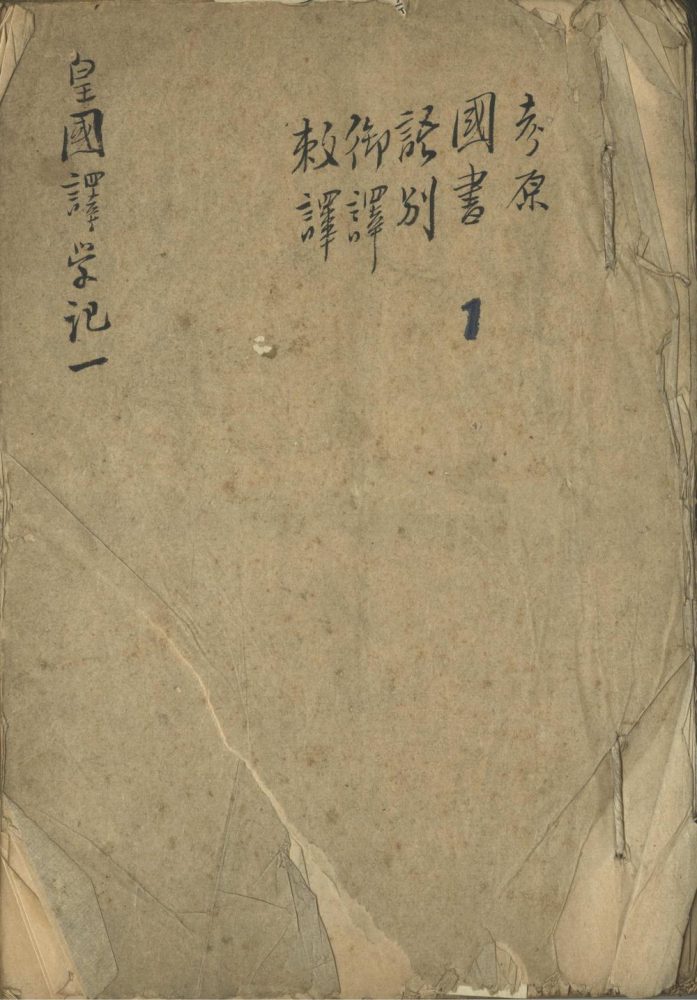 考原
國書
語別
御譯
敕譯
皇國譯学記一
1